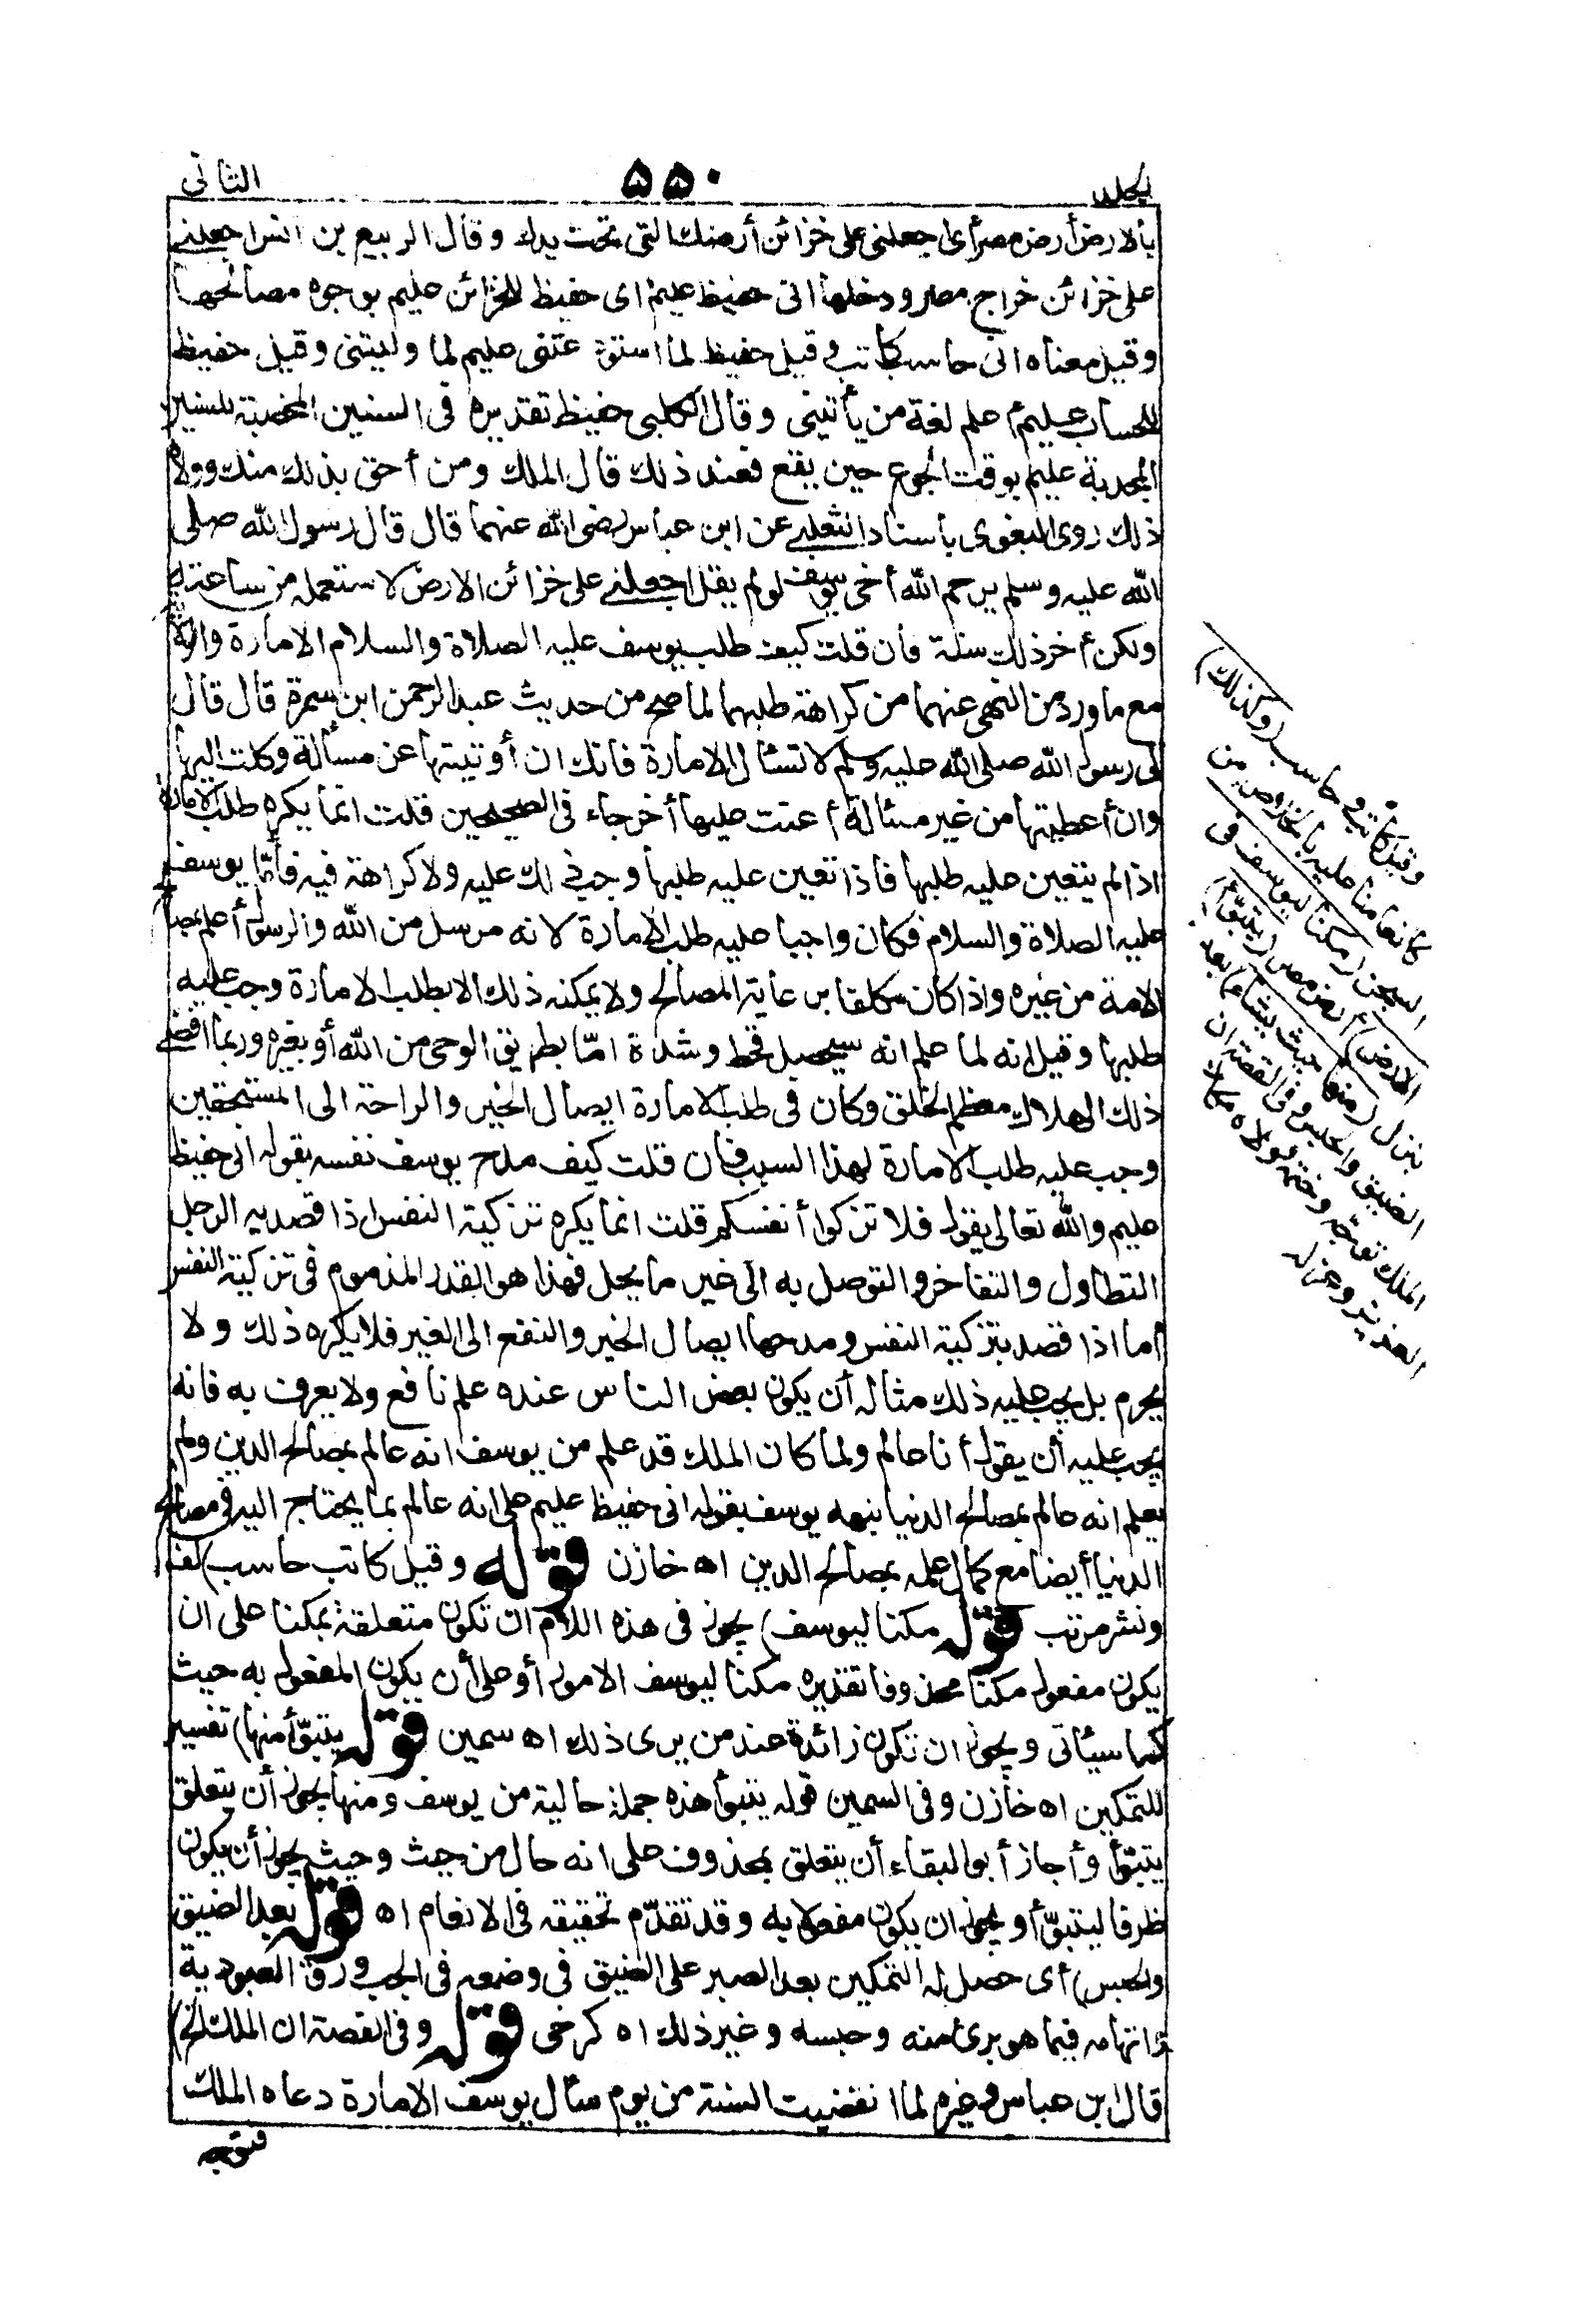 الجلد
٥٥٠
الثانى
بالارض أرض مصر أى اجعلنى على خزائن أرضك التى تحت يدك وقال الربيع بن انس اجعلنى
على خزائن خراج مصر ودخلها انى حفيظ عليم أى حفيظ للخزائن عليم بوجوه مصالحها
وقيل معناه انى حاسب كاتب وقيل حفيظ لما استودعتنى عليم لما وليتنى وقيل حفيظ
للحساب عليم أعلم لغة من يأتينى وقال الكلبى حفيظ تقديره فى السنين المخصبة للسنين
المجدبة عليم بوقت الجوع حين يقع فعند ذلك قال الملك ومن أحق بذلك منك وولاه
ذلك روى البغوى باسناد الثعلبى عن ابن عباس رضى الله عنهما قال قال رسول الله صلى
الله عليه وسلم يرحم الله أخى يوسف لو لم يقل اجعلنى على خزائن الارض لاستعمله من ساعته
ولكن أخر ذلك سنة فان قلت كيف طلب يوسف عليه الصلاة والسلام الامارة والولاية
مع ما ورد من النهى عنهما من كراهة طلبهما لما صح من حديث عبد الرحمن ابن سمرة قال قال
لى رسول الله صلى الله عليه وسلم لا تسئال الامارة فانك ان أوتيتها عن مسألة وكلت اليها
وان أعطيتها من غير مسئالة أعنت عليها أخرجاه فى الصحيحين قلت انما يكره طلب الامارة
اذا لم يتعين عليه طلبها فاذا تعين عليه طلبها وجب ذلك عليه ولا كراهة فيه فأمّا يوسف
عليه الصلاة والسلام فكان واجبا عليه طلب الامارة لانه مرسل من الله والرسول أعلم بمصالح
الامة من غيره واذا كان مكلفا برعاية المصالح ولا يمكنه ذلك الا بطلب الامارة وجب عليه
طلبها وقيل انه لما علم انه سيحصل قحط وشدة امّا بطريق الوحى من الله أو بغيره وربما افضى
ذلك الى هلاك معظم الخلق وكان فى طلب الامارة ايصال الخير والراحة الى المستحقين
وجب عليه طلب الامارة لهذا السبب فان قلت كيف مدح يوسف نفسه بقوله انى حفيظ
عليم والله تعالى يقول فلا تزكوا أنفسكم قلت انما يكره تزكية النفس اذا قصد به الرجل
التطاول والتفاخر والتوصل به الى غير ما يحل فهذا هو القدر المذموم فى تزكية النفس
أما اذا قصد بتزكية النفس ومدحها ايصال الخير والنفع الى الغير فلا يكره ذلك ولا
يحرم بل يجب عليه ذلك مثاله أن يكون بعض الناس عنده علم نافع ولا يعرف به فانه
يجب عليه أن يقول أنا عالم ولما كان الملك قد علم من يوسف انه عالم بمصالح الدين ولم
يعلم انه عالم بمصالح الدنيا نبهه يوسف بقوله انى حفيظ عليم على انه عالم بما يحتاج اليه فى مصالح
الدنيا أيضا مع كمال علمه بمصالح الدين اه خازن قوله وقيل كاتب حاسب) لف
ونشر مرتب قوله مكنا ليوسف) يجوز فى هذه اللام ان تكون متعلقة بمكنا على ان
يكون مفعول مكنا محذوفا تقديره مكنا ليوسف الامور أو على أن يكون المفعول به حيث
كما سيئاتى ويجوز ان تكون زائدة عند من يرى ذلك اه سمين قوله يتبوّأ منها) تفسير
للتمكين اه خازن وفى السمين قوله يتبوأ هذه جملة حالية من يوسف ومنها يجوز أن يتعلق
يتبوّأ وأجاز أبو البقاء أن يتعلق بمحذوف على انه حال من حيث وحيث يجوز أن يكون
ظرفا ليتبوّأ ويجوز ان يكون مفعولا به وقد تقدّم تحقيقه فى الانعام اه قوله بعد الضيق
والحبس) أى حصل له التمكين بعد الصبر على الضيق فى وضعه فى الجب ورق العبودية
واتهامه فيما هو برئ منه وحبسه وغير ذلك اه كرخى قوله وفى القصة ان الملك الخ)
قال ابن عباس وغيره لما انقضت السنة من يوم سئال يوسف الامارة دعاه الملك
فتوجه
وقيل كاتب وحاسب (وكذلك)
كانعامنا عليه بالخلاص من
السجن (مكنا ليوسف فى
الارض) أرض مصر (يتبوّأ)
ينزل (منها حيث يشاء) بعد
الضيق والحبس وفى القصة ان
الملك توّجه وختمه وولاه مكان
العزيز وعزله